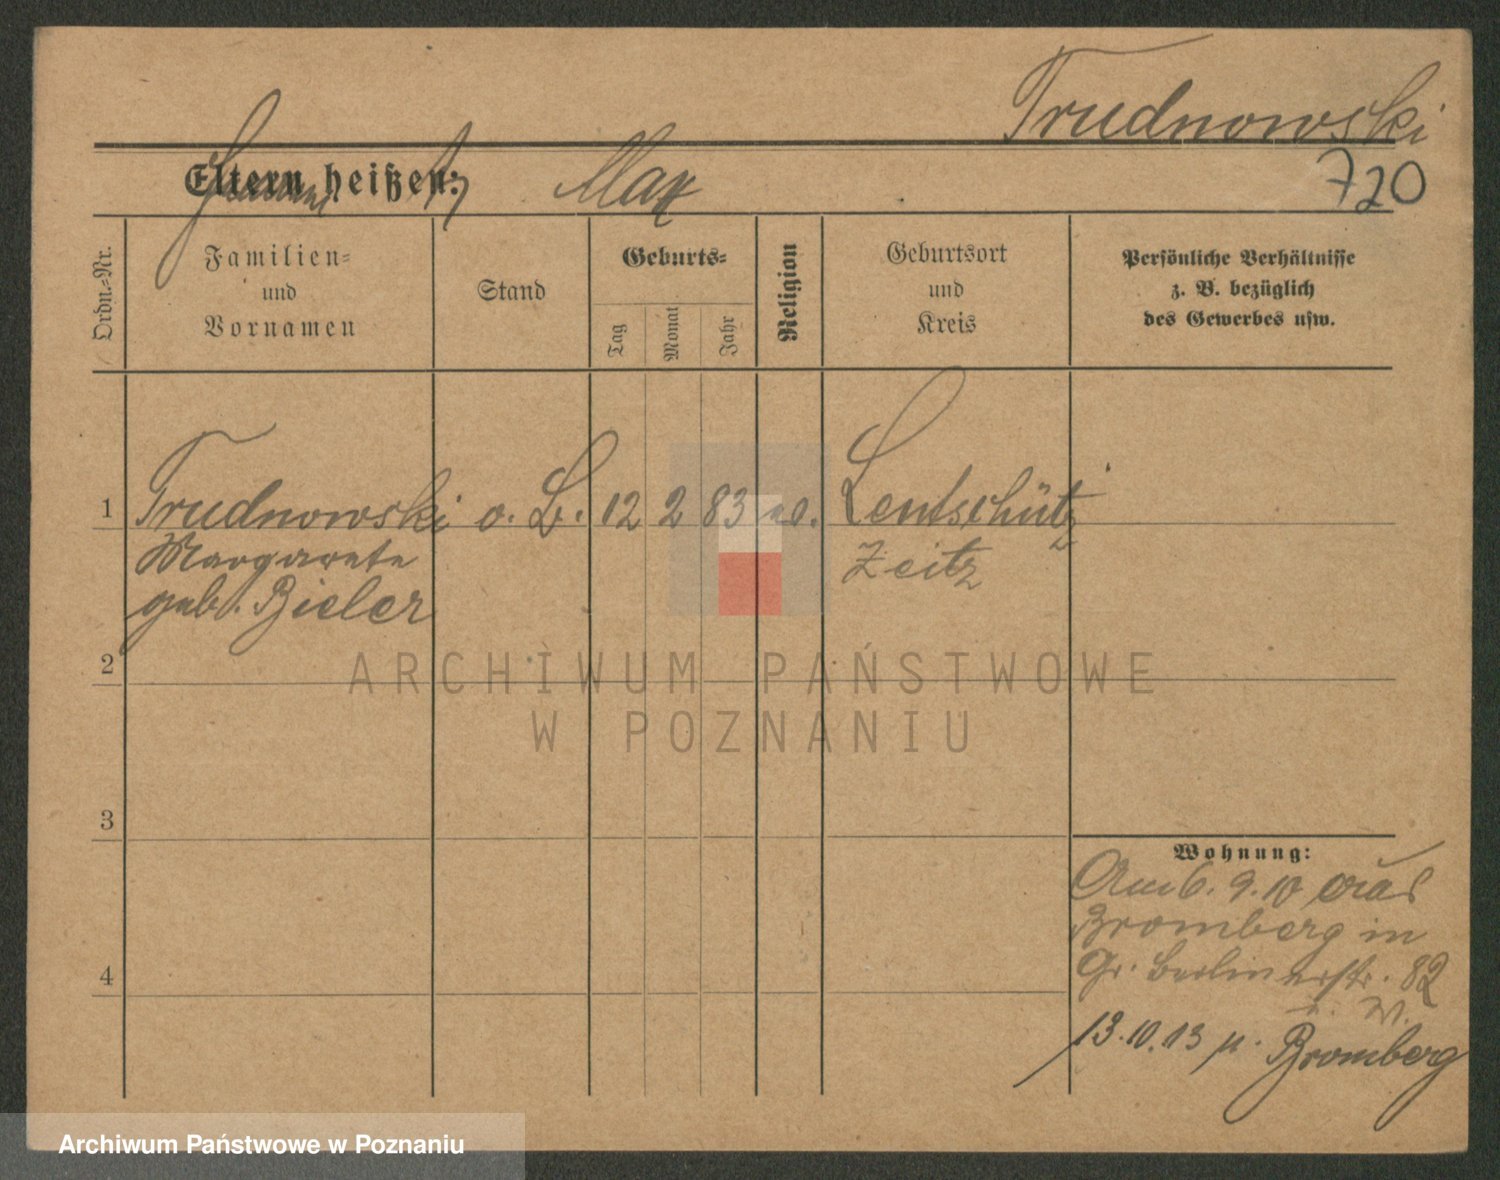 Trudnowski
Eltern heißen: Max
720
Ordn.-Nr.
Familien-
und
Vornamen
Stand
Geburts-
Tag
Monat
Jahr
Religion
Geburtsort
und
Kreis
Persönliche Verhältnisse
z. B. bezüglich
des Gewerbes usw.
1 Trudnowski o. B. 12 2 83 Lentschütz
Margarete Zeitz
geb. Bieler
2
3
4
Wohnung:
9. 10
Bromberg in
Gr. Berlinerstr. 82
13.10.13 Bromberg
ARCHIWUM PAŃSTWOWE
W POZNANIU
Archiwum Państwowe w Poznaniu